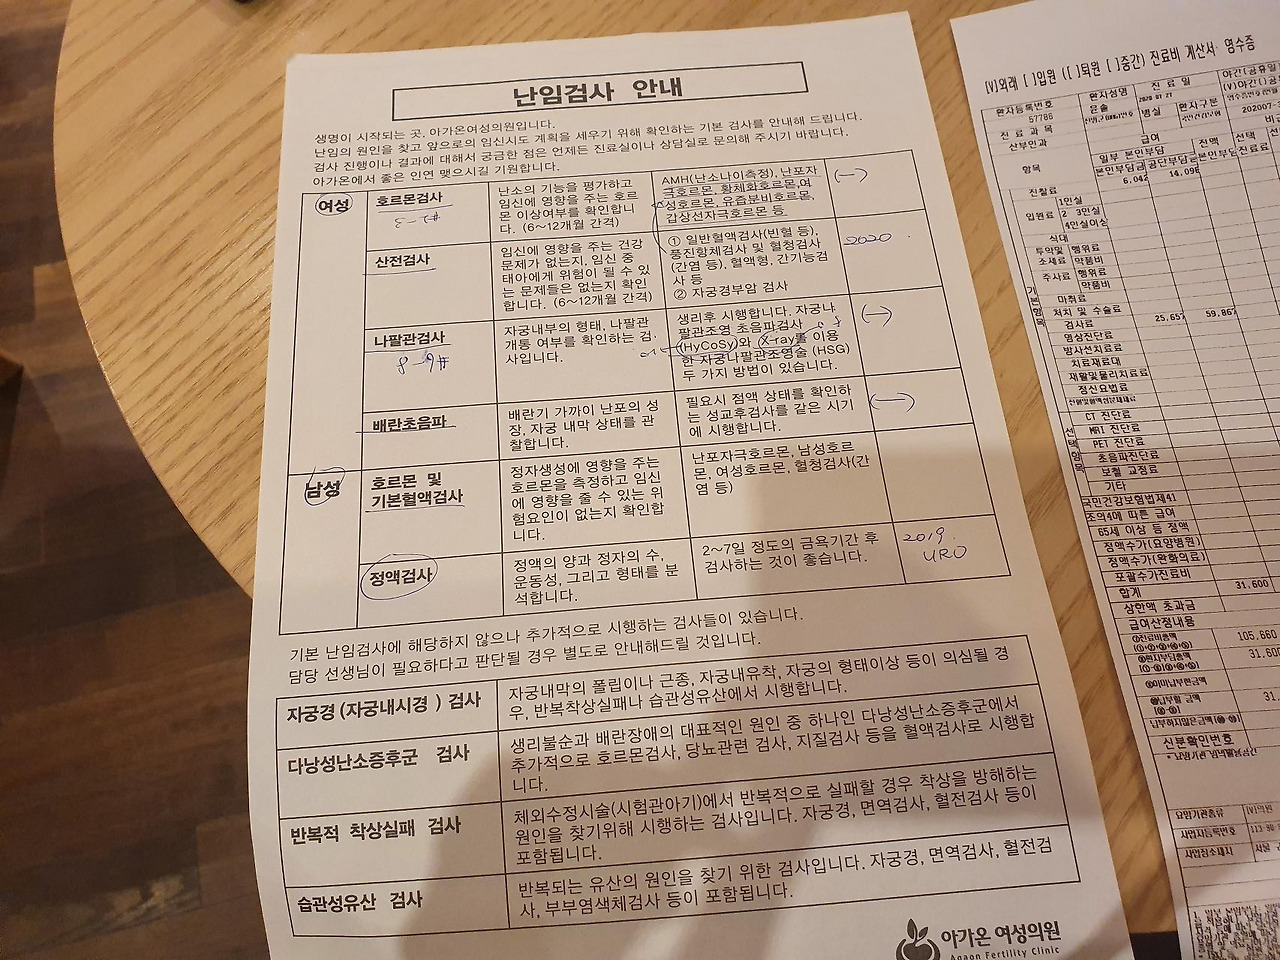 난임검사 안내
생명이 시작되는 곳, 아가온여성의원입니다.
난임의 원인을 찾고 앞으로의 임신시도 계획을 세우기 위해 확인하는 기본 검사를 안내해 드립니다.
검사 진행이나 결과에 대해서 궁금한 점은 언제든 진료실이나 상담실로 문의해 주시기 바랍니다.
아가온에서 좋은 인연 맺으시길 기원합니다.
여성
호르몬검사
난소의 기능을 평가하고
임신에 영향을 주는 호르
몬 이상여부를 확인합니
다. (6~12개월 간격)
AMH(난소나이측정), 난포자
극호르몬, 황체화호르몬,여
성호르몬, 유즙분비호르몬,
갑상선자극호르몬 등
(-)
산전검사
임신에 영향을 주는 건강
문제가 없는지, 임신 중
태아에게 위험이 될 수 있
는 문제들은 없는지 확인
합니다. (6~12개월 간격)
① 일반혈액검사(빈혈 등),
풍진항체검사 및 혈청검사
(간염 등), 혈액형, 간기능검
사 등
② 자궁경부암 검사
2020
나팔관검사
8-9#
자궁내부의 형태, 나팔관
개통 여부를 확인하는 검
사입니다.
생리후 시행합니다. 자궁나
팔관조영 초음파검사
(HyCoSy)와 X-ray를 이용
한 자궁나팔관조영술 (HSG)
두 가지 방법이 있습니다.
(-)
배란초음파
배란기 가까이 난포의 성
장, 자궁 내막 상태를 관
찰합니다.
필요시 점액 상태를 확인하
는 성교후검사를 같은 시기
에 시행합니다.
(-)
남성
호르몬 및
기본혈액검사
정자생성에 영향을 주는
호르몬을 측정하고 임신
에 영향을 줄 수 있는 위
험요인이 없는지 확인합
니다.
난포자극호르몬, 남성호르
몬, 여성호르몬, 혈청검사(간
염 등)
정액검사
정액의 양과 정자의 수,
운동성, 그리고 형태를 분
석합니다.
2~7일 정도의 금욕기간 후
검사하는 것이 좋습니다.
2019.
URO
기본 난임검사에 해당하지 않으나 추가적으로 시행하는 검사들이 있습니다.
담당 선생님이 필요하다고 판단될 경우 별도로 안내해드릴 것입니다.
자궁경(자궁내시경) 검사
자궁내막의 폴립이나 근종, 자궁내유착, 자궁의 형태이상 등이 의심될 경
우, 반복착상실패나 습관성유산에서 시행합니다.
다낭성난소증후군 검사
생리불순과 배란장애의 대표적인 원인 중 하나인 다낭성난소증후군에서
추가적으로 호르몬검사, 당뇨관련 검사, 지질검사 등을 혈액검사로 시행합
니다.
반복적 착상실패 검사
체외수정시술(시험관아기)에서 반복적으로 실패할 경우 착상을 방해하는
원인을 찾기위해 시행하는 검사입니다. 자궁경, 면역검사, 혈전검사 등이
포함됩니다.
습관성유산 검사
반복되는 유산의 원인을 찾기 위한 검사입니다. 자궁경, 면역검사, 혈전검
사, 부부염색체검사 등이 포함됩니다.
아가온 여성의원
Agaon Fertility Clinic
[V]외래 [ ]입원 ([ ]퇴원 [ ]중간) 진료비 계산서·영수증
환자등록번호
환자성명
진 료 일
야간(공휴일)
57786
윤솔
병실
환자구분
(V)야간( )공
진 료 과 목
산부인과
급여
항목
일부 본인부담
전액
선택
본인부담금
공단부담금
본인부담
진료료
진찰료
6,042
14,096
입원료
1인실
2 3인실
4인실이상
식대
투약및
조제료
행위료
약품비
주사료
행위료
약품비
마취료
처치 및 수술료
검사료
25,657
59,867
영상진단료
방사선치료료
치료재료대
재활및물리치료료
정신요법료
기본항목
CT 진단료
MRI 진단료
PET 진단료
초음파진단료
보철 교정료
선택항목
기타
국민건강보험법제41
조의4에 따른 급여
65세 이상 등 정액
정액수가(요양병원)
정액수가(완화의료)
포괄수가진료비
합계
31,600
상한액 초과금
급여산정내용
105,660
31,600
31
신분확인번호
요양기관종류
사업자등록번호
사업장소재지